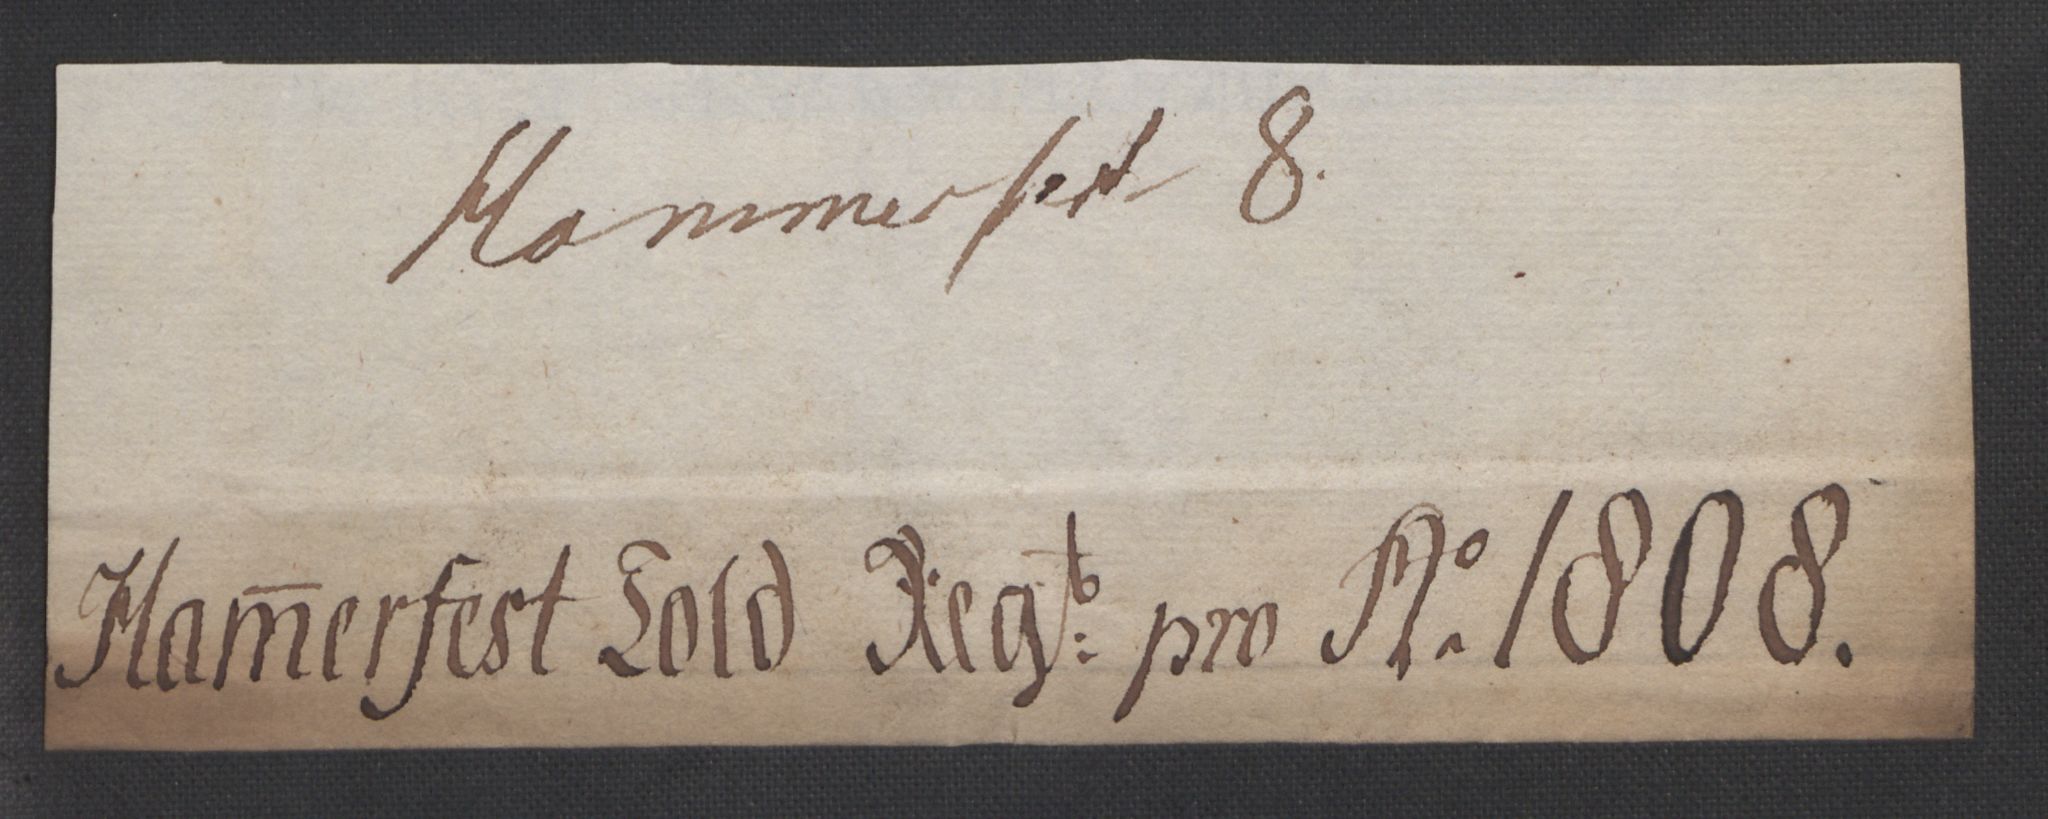 Hammerfest 8.
Ham̅erfest Told Regb: pro Ao. 1808.